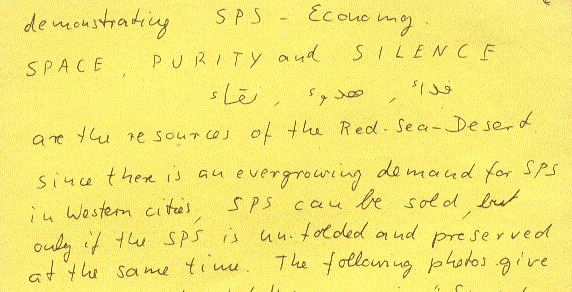 demonstrating SPS - Economy.
SPACE, PURITY and SILENCE
فداء , هدوء , نقاء
are the resources of the Red-Sea-Desert
Since there is an evergrowing demand for SPS
in Western cities, SPS can be sold, but
only if the SPS is unfolded and preserved
at the same time. The following photos give